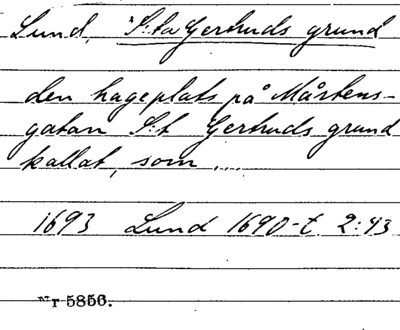 Lund, S:ta Gertruds grund
den hageplats på Mårtens-
gatan S:t Gertruds grund
kallat, som ....
1693 Lund 1690-t. 2:43
Nr 5856.